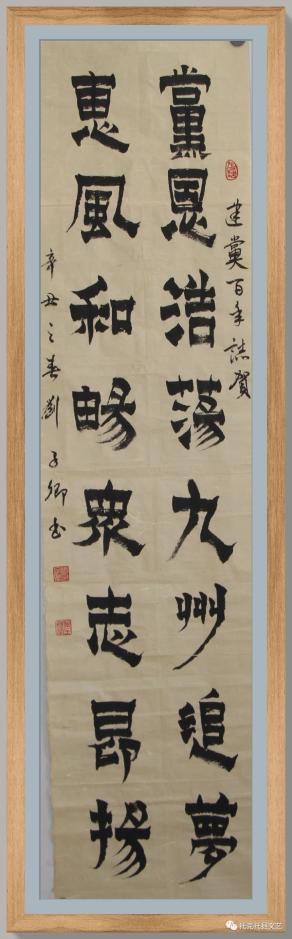 建黨百年誌賀
黨恩浩蕩九州追夢
惠風和暢眾志昂揚
辛丑之春劉子卿書
托克托县文艺